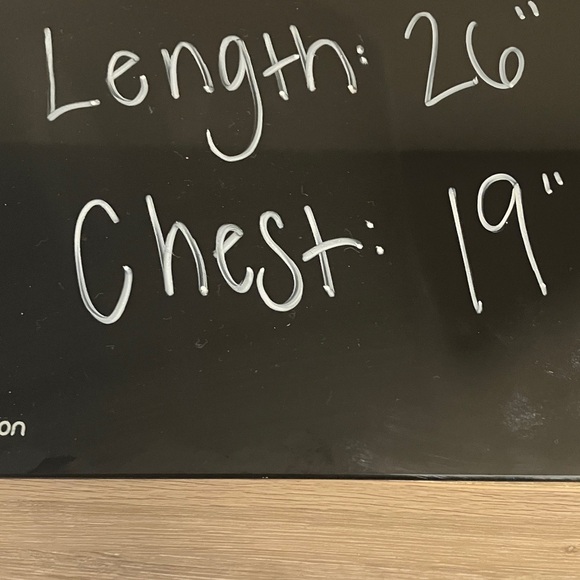 Length: 26"
Chest: 19"
on